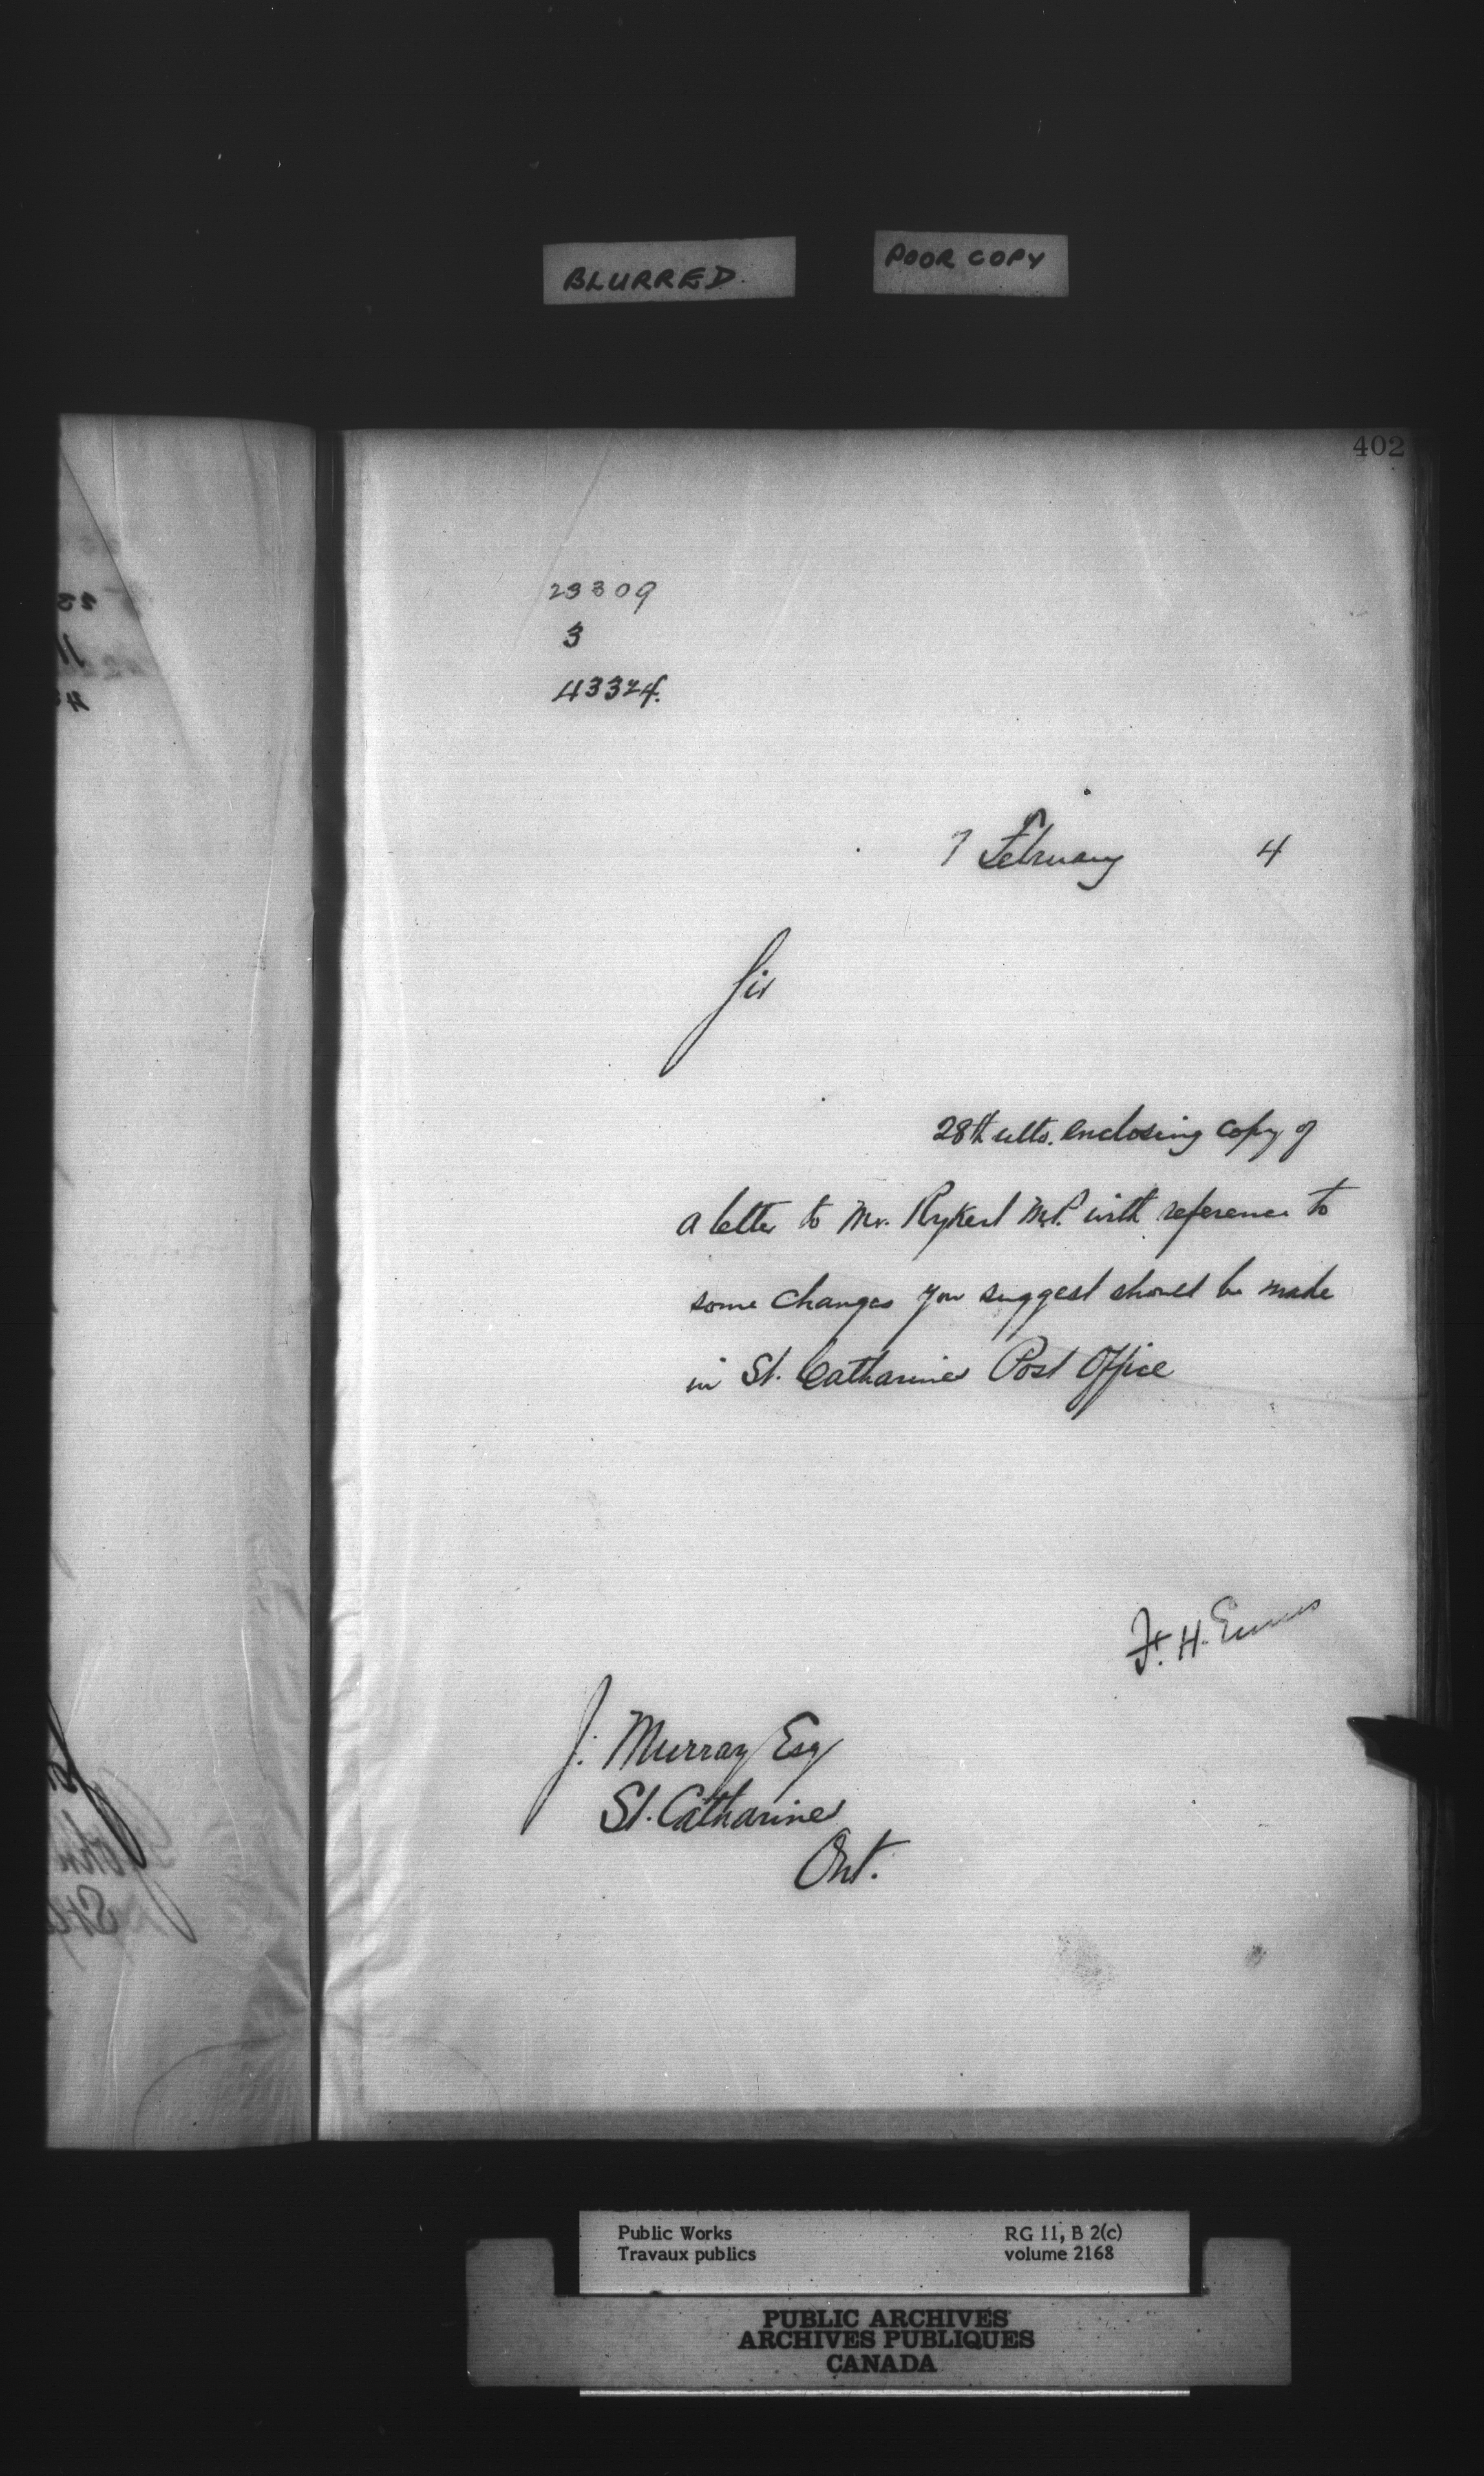 BLURRED.
POOR COPY
402
23309
3
43324.
7 February 4
Sir
28th ulto. enclosing copy of
a letter to Mr. Rykert M.P. with reference to
some changes you suggest should be made
in St. Catharines Post Office
F. H. Ennis
J. Murray Esq
St. Catharines
Ont.
Public Works
Travaux publics
RG 11, B 2(c)
volume 2168
PUBLIC ARCHIVES
ARCHIVES PUBLIQUES
CANADA